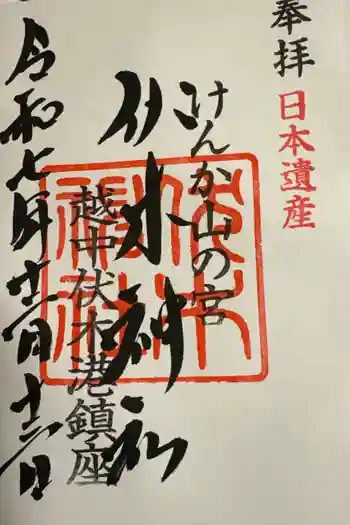 奉拝
日本遺産
けんか山の宮
伏木神社
越中伏木港鎮座
令和七年十二月十二日